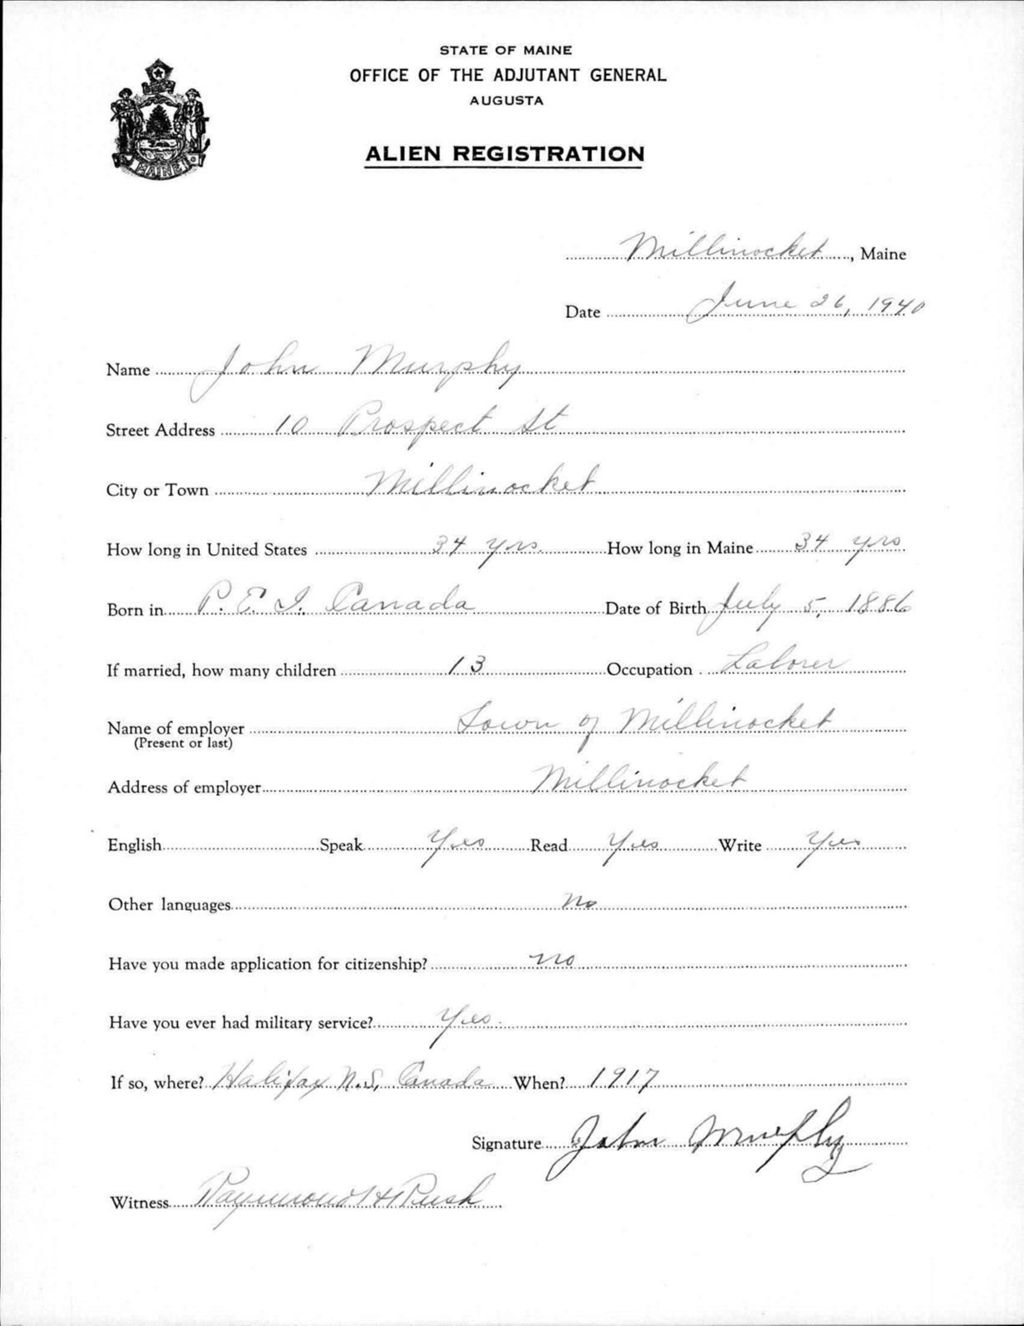 STATE OF MAINE
OFFICE OF THE ADJUTANT GENERAL
AUGUSTA
ALIEN REGISTRATION
MAINE
Millinocket, Maine
Date June 26, 1940
Name John Murphy
Street Address 10 Prospect St
City or Town Millinocket
How long in United States 34 yrs. How long in Maine 34 yrs
Born in P. E. I. Canada Date of Birth July 5, 1886
If married, how many children 13 Occupation Laborer
Name of employer Town of Millinocket
(Present or last)
Address of employer Millinocket
English Speak Yes Read Yes Write Yes
Other languages No
Have you made application for citizenship? no
Have you ever had military service? Yes
If so, where? Halifax N.S. Canada When? 1917
Signature John Murphy
Witness Raymond H Rush